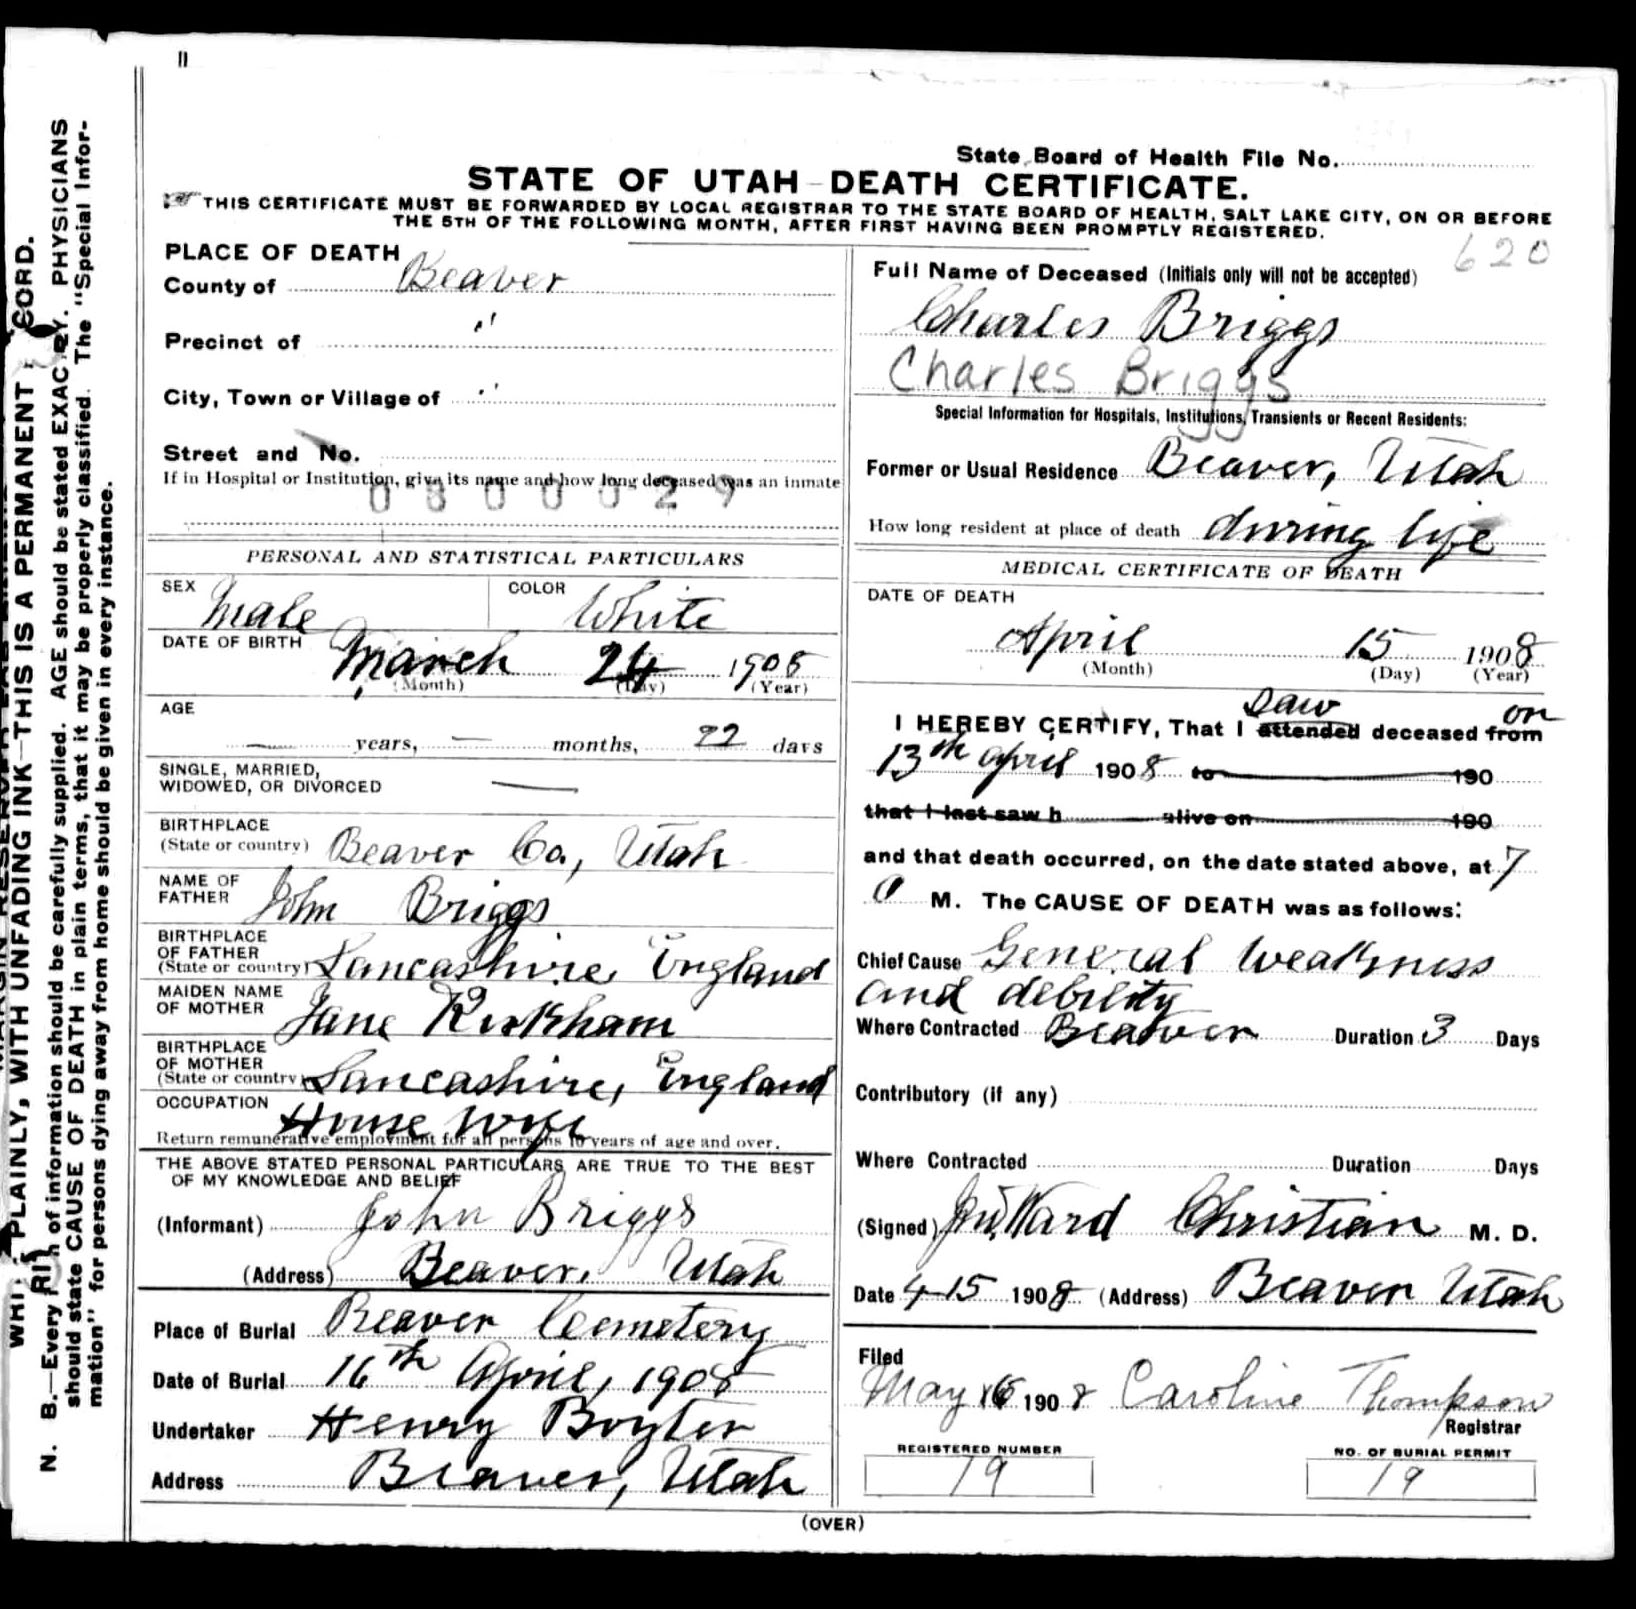 State Board of Health File No.
STATE OF UTAH—DEATH CERTIFICATE.
THIS CERTIFICATE MUST BE FORWARDED BY LOCAL REGISTRAR TO THE STATE BOARD OF HEALTH, SALT LAKE CITY, ON OR BEFORE
THE 5TH OF THE FOLLOWING MONTH, AFTER FIRST HAVING BEEN PROMPTLY REGISTERED.
620
PLACE OF DEATH
County of Beaver
Precinct of "
City, Town or Village of "
Street and No.
If in Hospital or Institution, give its name and how long deceased was an inmate
0800029
PERSONAL AND STATISTICAL PARTICULARS
SEX Male COLOR White
DATE OF BIRTH March 24 1908
(Month) (Day) (Year)
AGE
— years, — months, 22 days
SINGLE, MARRIED,
WIDOWED, OR DIVORCED —
BIRTHPLACE
(State or country) Beaver Co., Utah
NAME OF
FATHER John Briggs
BIRTHPLACE
OF FATHER
(State or country) Lancashire, England
MAIDEN NAME
OF MOTHER Jane Kirkham
BIRTHPLACE
OF MOTHER
(State or country) Lancashire, England
OCCUPATION House Wife
Return remunerative employment for all persons 10 years of age and over.
THE ABOVE STATED PERSONAL PARTICULARS ARE TRUE TO THE BEST
OF MY KNOWLEDGE AND BELIEF
(Informant) John Briggs
(Address) Beaver, Utah
Place of Burial Beaver Cemetery
Date of Burial 16th April, 1908
Undertaker Henry Boyter
Address Beaver, Utah
Full Name of Deceased (Initials only will not be accepted)
Charles Briggs
Charles Briggs
Special Information for Hospitals, Institutions, Transients or Recent Residents:
Former or Usual Residence Beaver, Utah
How long resident at place of death during life
MEDICAL CERTIFICATE OF DEATH
DATE OF DEATH
April 15 1908
(Month) (Day) (Year)
saw on
I HEREBY CERTIFY, That I attended deceased from
13th April 1908 to 190
that I last saw h alive on 190
and that death occurred, on the date stated above, at 7
a M. The CAUSE OF DEATH was as follows:
Chief Cause General Weakness
and debility
Where Contracted Beaver Duration 3 Days
Contributory (if any)
Where Contracted Duration Days
(Signed) Ward Christian M. D.
Date 4-15 1908 (Address) Beaver Utah
Filed
May 1908 Caroline Thompson
Registrar
REGISTERED NUMBER
19
NO. OF BURIAL PERMIT
19
(OVER)
PLAINLY, WITH UNFADING INK—THIS IS A PERMANENT
N. B.—Every of information should be carefully supplied. AGE should be stated EXAC PHYSICIANS
should state CAUSE OF DEATH in plain terms, that it may be properly classified. The "Special Infor-
mation" for persons dying away from home should be given in every instance.